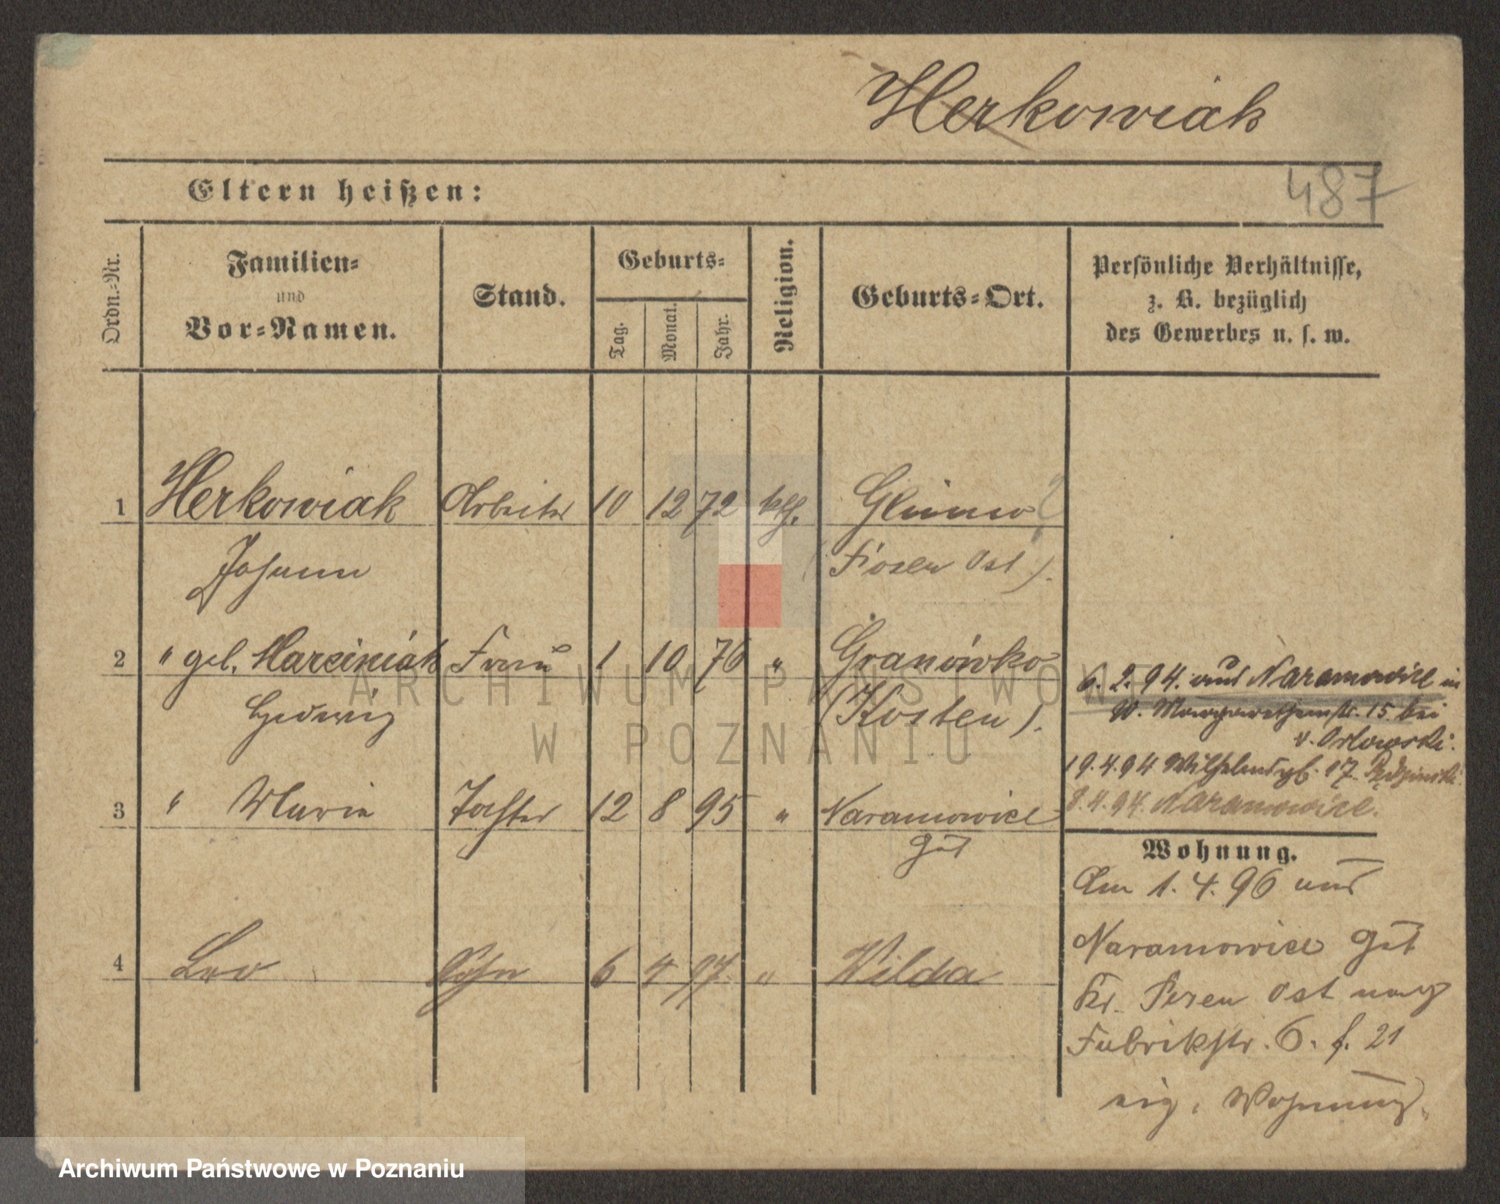 Herkowiak
487
Eltern heißen:
Ordn.-Nr.
Familien-
und
Vor-Namen.
Stand.
Geburts-
Tag.
Monat.
Jahr.
Religion.
Geburts-Ort.
Persönliche Verhältnisse,
z. B. bezüglich
des Gewerbes u. s. w.
1 Herkowiak Arbeiter 10 12 72 kth.
Johann (Posen Ost).
2 " geb. Marciniak Frau 1 10 76 " Granówko
Hedwig (Kosten).
3 " Marie Tochter 12 8 95 " Naramowice
Gut
4 Leo Sohn 6 4 97 " Wilda
6. 2. 94. aus Naramowice in
W. Margarethenstr. 15 bei
v. Orlowski.
19.4.94 17
8.4.94. Naramowice.
Wohnung.
Am 1. 4. 96 aus
Naramowice Gut
Kr. Posen Ost nach
Fabrikstr. 6. f. 21
eig. Wohnung.
ARCHIWUM PAŃSTWOWE
W POZNANIU
Archiwum Państwowe w Poznaniu